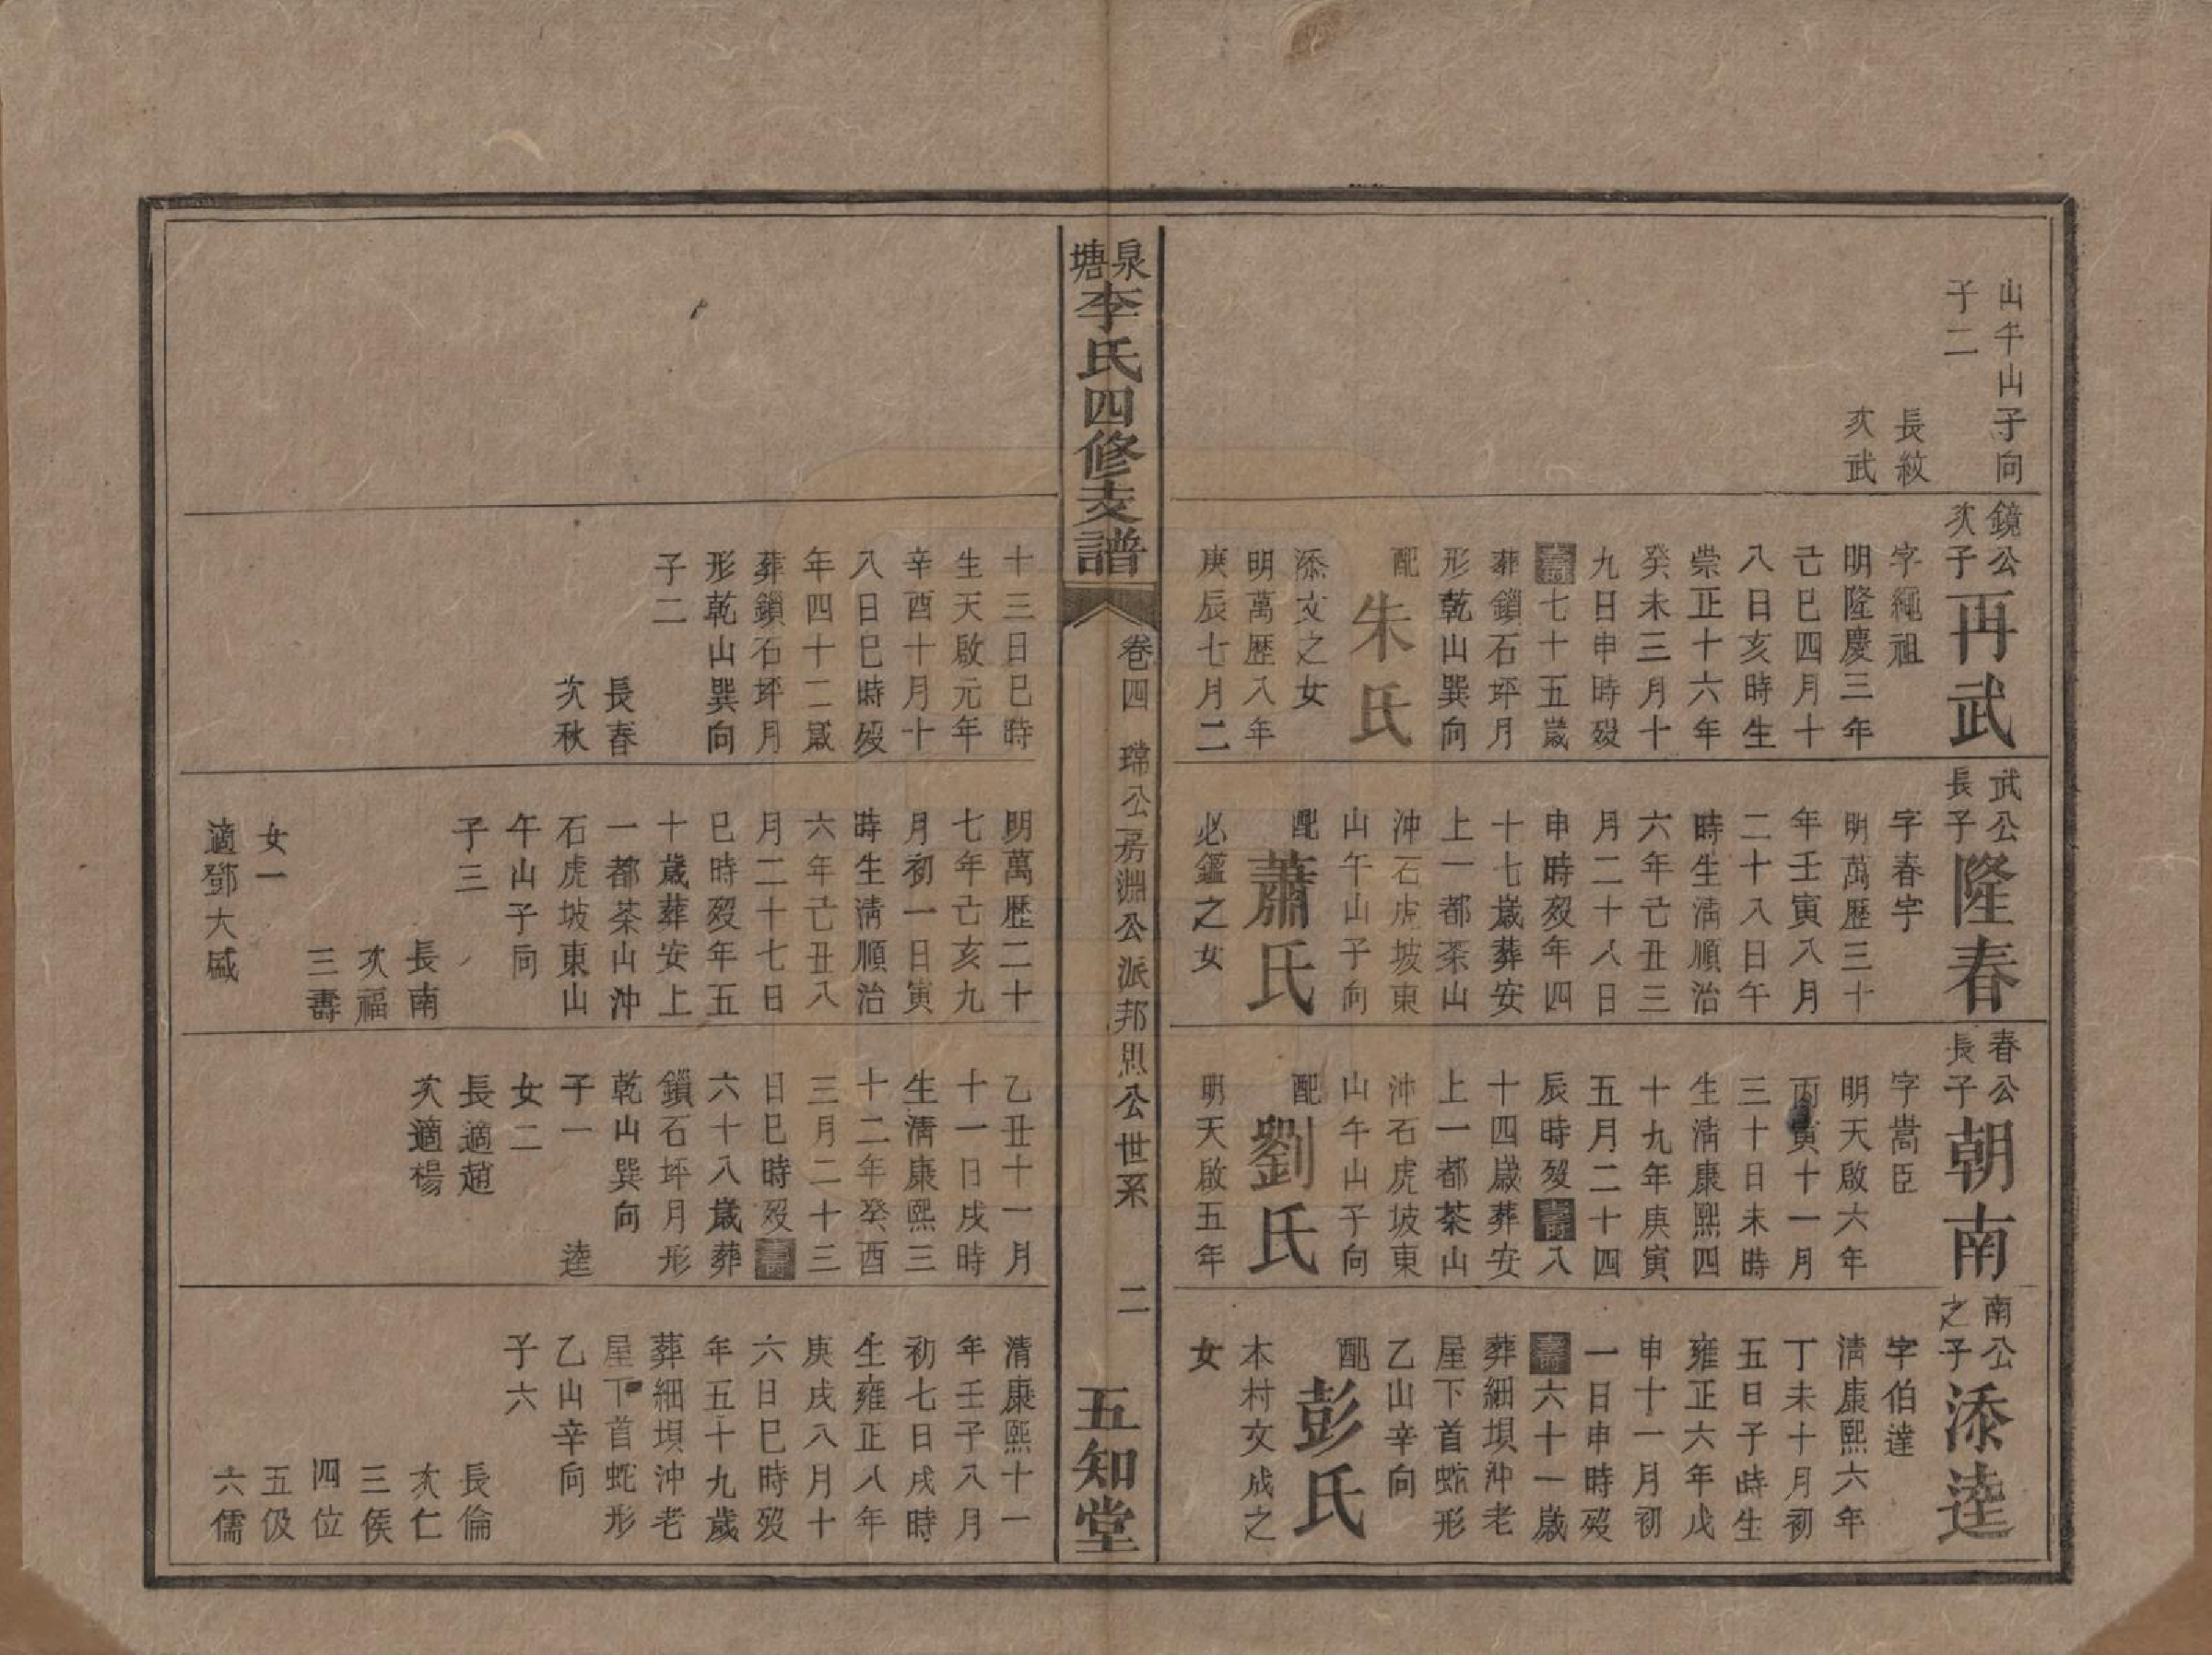 山午山子向
子二
長紋
次武
鏡公
次子
再武
字繩祖
明隆慶三年
己巳四月十
八日亥時生
崇正十六年
癸未三月十
九日申時歿
壽七十五歲
葬鎖石坪月
形乾山巽向
配
朱氏
添文之女
明萬歷八年
庚辰七月二
十三日巳時
生天啟元年
辛酉十月十
八日巳時歿
年四十二歲
葬鎖石坪月
形乾山巽向
子二
長春
次秋
武公
長子
隆春
字春宇
明萬歷三十
年壬寅八月
二十八日午
時生清順治
六年己丑三
月二十八日
申時歿年四
十七歲葬安
上一都茶山
沖石虎坡東
山午山子向
配
蕭氏
必鑑之女
明萬歷二十
七年己亥九
月初一日寅
時生清順治
六年己丑八
月二十七日
巳時歿年五
十歲葬安上
一都茶山沖
石虎坡東山
午山子向
子三
長南
次福
三壽
女一
適鄧大
春公
長子
朝南
字嵩臣
明天啟六年
丙寅十一月
三十日未時
生清康熙四
十九年庚寅
五月二十四
辰時歿壽八
十四歲葬安
上一都茶山
沖石虎坡東
山午山子向
配
劉氏
明天啟五年
乙丑十一月
十一日戌時
生清康熙三
十二年癸酉
三月二十三
日巳時歿壽
六十八歲葬
鎖石坪月形
乾山巽向
子一
逵
女二
長適趙
次適楊
南公
之子
添逵
字伯達
清康熙六年
丁未十月初
五日子時生
雍正六年戊
申十一月初
一日申時歿
壽六十一歲
葬細垻沖老
屋下首蛇形
乙山辛向
配
彭氏
木村文成之
女
清康熙十一
年壬子八月
初七日戌時
生雍正八年
庚戌八月十
六日巳時歿
年五十九歲
葬細垻沖老
屋下首蛇形
乙山辛向
子六
長倫
次仁
三侯
四位
五伋
六儒
泉塘李氏四修支譜
卷四 瑺公房淵公派邦恩公世系 二
五知堂